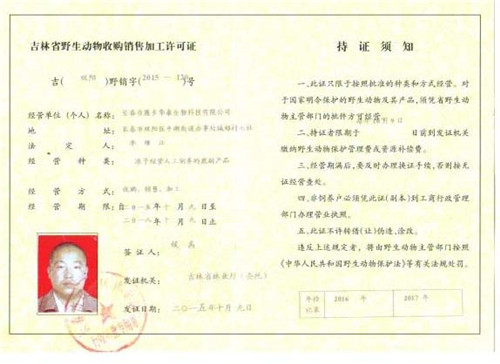 吉林省野生动物收购销售加工许可证
吉(双阳)野销字(2015—120)号
经营单位(个人):长春市 生物科技有限公司
地址:长春市双阳区
法定人:李
经营种类:准予经营人工驯养的 产品
经营方式:收购、销售、加工
经营期限:自二〇一五年十月九日至
二〇一八年十月九日止
签证人:
发证机关:吉林省林业厅
发证日期:二〇一五年十月九日
持证须知
一、此证只限于按照批准的种类和方式经营。对
于国家明令保护的野生动物及其产品,须凭省野生动
物主管部门的批件方可经营
二、持证者限期于 日前到发证机关
缴纳野生动物保护管理费或资源补偿费。
三、经营期满后,要及时办理换证手续,否则按无
证经营查处。
四、非饲养户必须凭此证(副本)到工商行政管理
部门办理营业执照。
五、此证不许转借(让)伪造、涂改。
违反上述规定者,将由野生动物主管部门按照
《中华人民共和国野生动物保护法》等有关法规处罚。
年检
记录
2016 年
2017 年